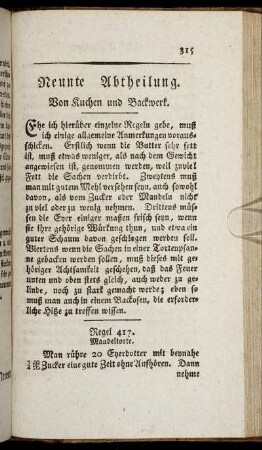 315
Neunte Abtheilung.
Von Kuchen und Backwerk.
Ehe ich hierüber einzelne Regeln gebe, muß
ich einige allgemeine Anmerkungen voraus-
schicken. Erstlich wenn die Butter sehr fett
ist, muß etwas weniger, als nach dem Gewicht
angewiesen ist, genommen werden, weil zuviel
Fett die Sachen verdirbt. Zweytens muß
man mit gutem Mehl versehen seyn, auch sowohl
davon, als vom Zucker oder Mandeln nicht
zu viel oder zu wenig nehmen. Drittens müs-
sen die Eyer einiger maßen frisch seyn, wenn
sie ihre gehörige Würkung thun, und etwa ein
guter Schaum davon geschlagen werden soll.
Viertens wenn die Sachen in einer Tortenpfan-
ne gebacken werden sollen, muß dieses mit ge-
höriger Achtsamkeit geschehen, daß das Feuer
unten und oben stets gleich, auch weder zu ge-
linde, noch zu stark gemacht werde; eben so
muß man auch in einem Backofen, die erforder-
liche Hitze zu treffen wissen.
Regel 417.
Mandeltorte.
Man rühre 20 Eyerdotter mit beynahe
Zucker eine gute Zeit ohne Aufhören. Dann
nehme